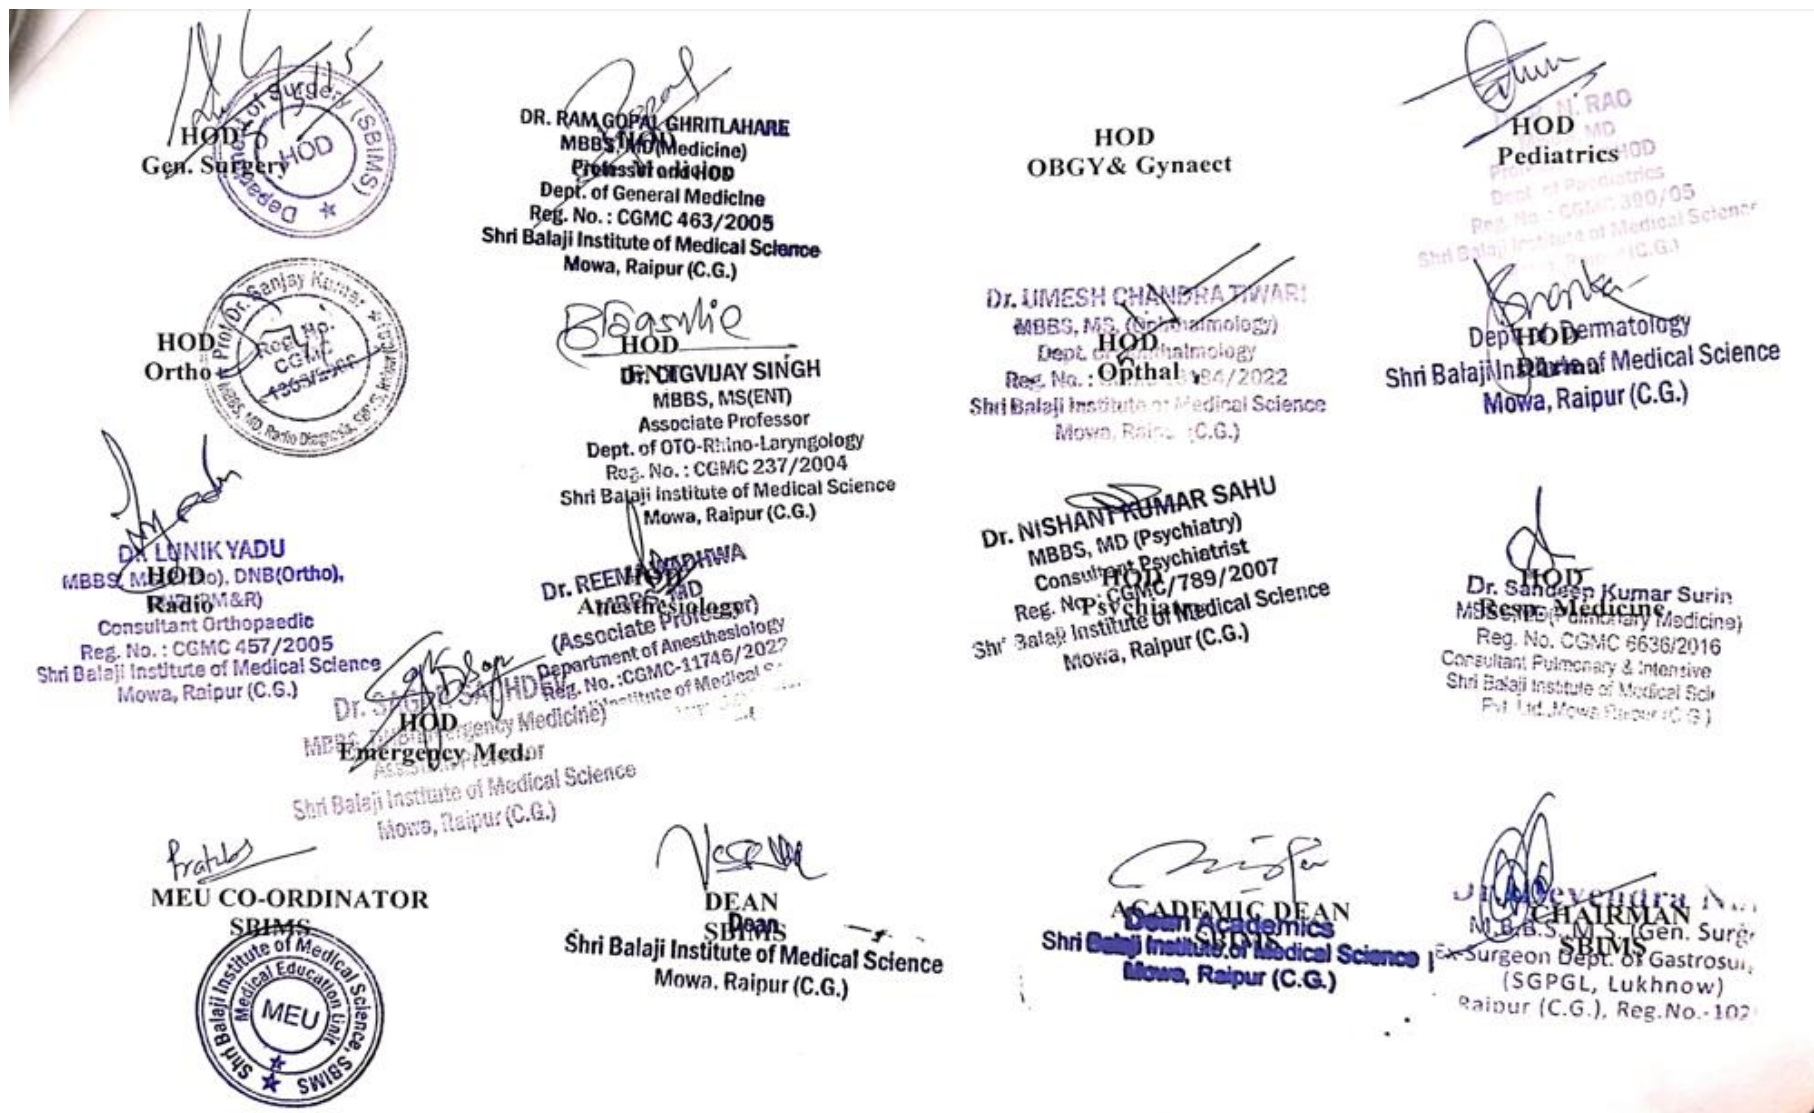 HOD
Gen. Surgery
Department of Surgery (SBIMS)
HOD
DR. RAM GOPAL GHRITLAHARE
HOD
MBBS, MD (Medicine)
Medicine
Professor and HOD
Dept. of General Medicine
Reg. No. : CGMC 463/2005
Shri Balaji Institute of Medical Science
Mowa, Raipur (C.G.)
HOD
OBGY& Gynaect
N. RAO
HOD
MD
Pediatrics
HOD
Dept. of Paediatrics
Reg. No. : CGMC 390/05
Shri Balaji Institute of Medical Science
(C.G.)
HOD
Ortho
Prof. Dr. Sanjay Kumar
Reg. No.
CGMC
MBBS, MD, Radio Diagnosis, SBIMS,
HOD
ENT
Dr. DIGVIJAY SINGH
MBBS, MS(ENT)
Associate Professor
Dept. of OTO-Rhino-Laryngology
Reg. No. : CGMC 237/2004
Shri Balaji Institute of Medical Science
Mowa, Raipur (C.G.)
Dr. UMESH CHANDRA TIWARI
MBBS, MS, (Ophthalmology)
HOD
Dept. of Ophthalmology
Opthal
Reg. No. : 84/2022
Shri Balaji Institute of Medical Science
Mowa, Raipur (C.G.)
HOD
Dept. of Dermatology
Derma
Shri Balaji Institute of Medical Science
Mowa, Raipur (C.G.)
Dr. LUNIK YADU
HOD
MBBS, MS(Ortho), DNB(Ortho),
Radio
PM&R)
Consultant Orthopaedic
Reg. No. : CGMC 457/2005
Shri Balaji Institute of Medical Science
Mowa, Raipur (C.G.)
Dr. REEMA WADHWA
HOD
MBBS, MD
Anesthesiology
(Associate Professor)
Department of Anesthesiology
Reg. No. :CGMC-11746/2022
Institute of Medical
Dr. NISHANT KUMAR SAHU
MBBS, MD (Psychiatry)
Consultant Psychiatrist
HOD
Reg. No. : CGMC/789/2007
Psychiatry
Shri Balaji Institute of Medical Science
Mowa, Raipur (C.G.)
HOD
Dr. Sandeep Kumar Surin
Resp. Medicine
MBBS, MD (Pulmonary Medicine)
Reg. No. CGMC 6636/2016
Consultant Pulmonary & Intensive
Shri Balaji Institute of Medical Sci
Pvt. Ltd. Mowa Raipur (C.G.)
Dr. SAGAR SACHDEV
HOD
MBBS, DNB(Emergency Medicine)
Emergency Med.
Assistant Professor
Shri Balaji Institute of Medical Science
Mowa, Raipur (C.G.)
MEU CO-ORDINATOR
SBIMS
Shri Balaji Institute of Medical Science, SBIMS
Medical Education Unit
MEU
DEAN
SBIMS
Dean
Shri Balaji Institute of Medical Science
Mowa. Raipur (C.G.)
ACADEMIC DEAN
SBIMS
Dean Academics
Shri Balaji Institute of Medical Science
Mowa, Raipur (C.G.)
Dr. Devendra
CHAIRMAN
SBIMS
M.B.B.S., M.S. (Gen. Surg
Ex-Surgeon Dept. of Gastrosur
(SGPGL, Lukhnow)
Raipur (C.G.), Reg.No.-102